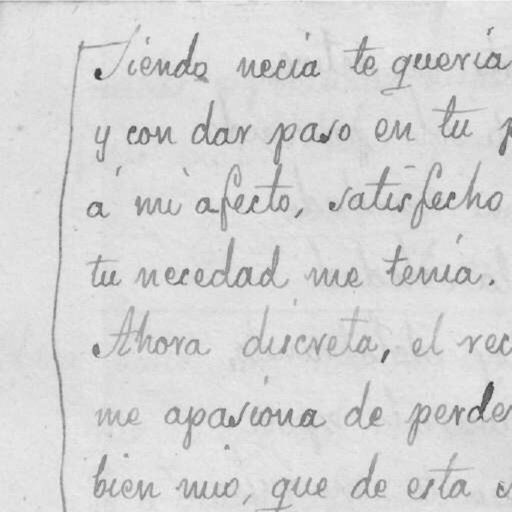 Siendo necia te quería
y con dar paso en tu
á mi afecto, satisfecho
tu necedad me tenía.
Ahora discreta, el
me apasiona de
bien mio, que de esta